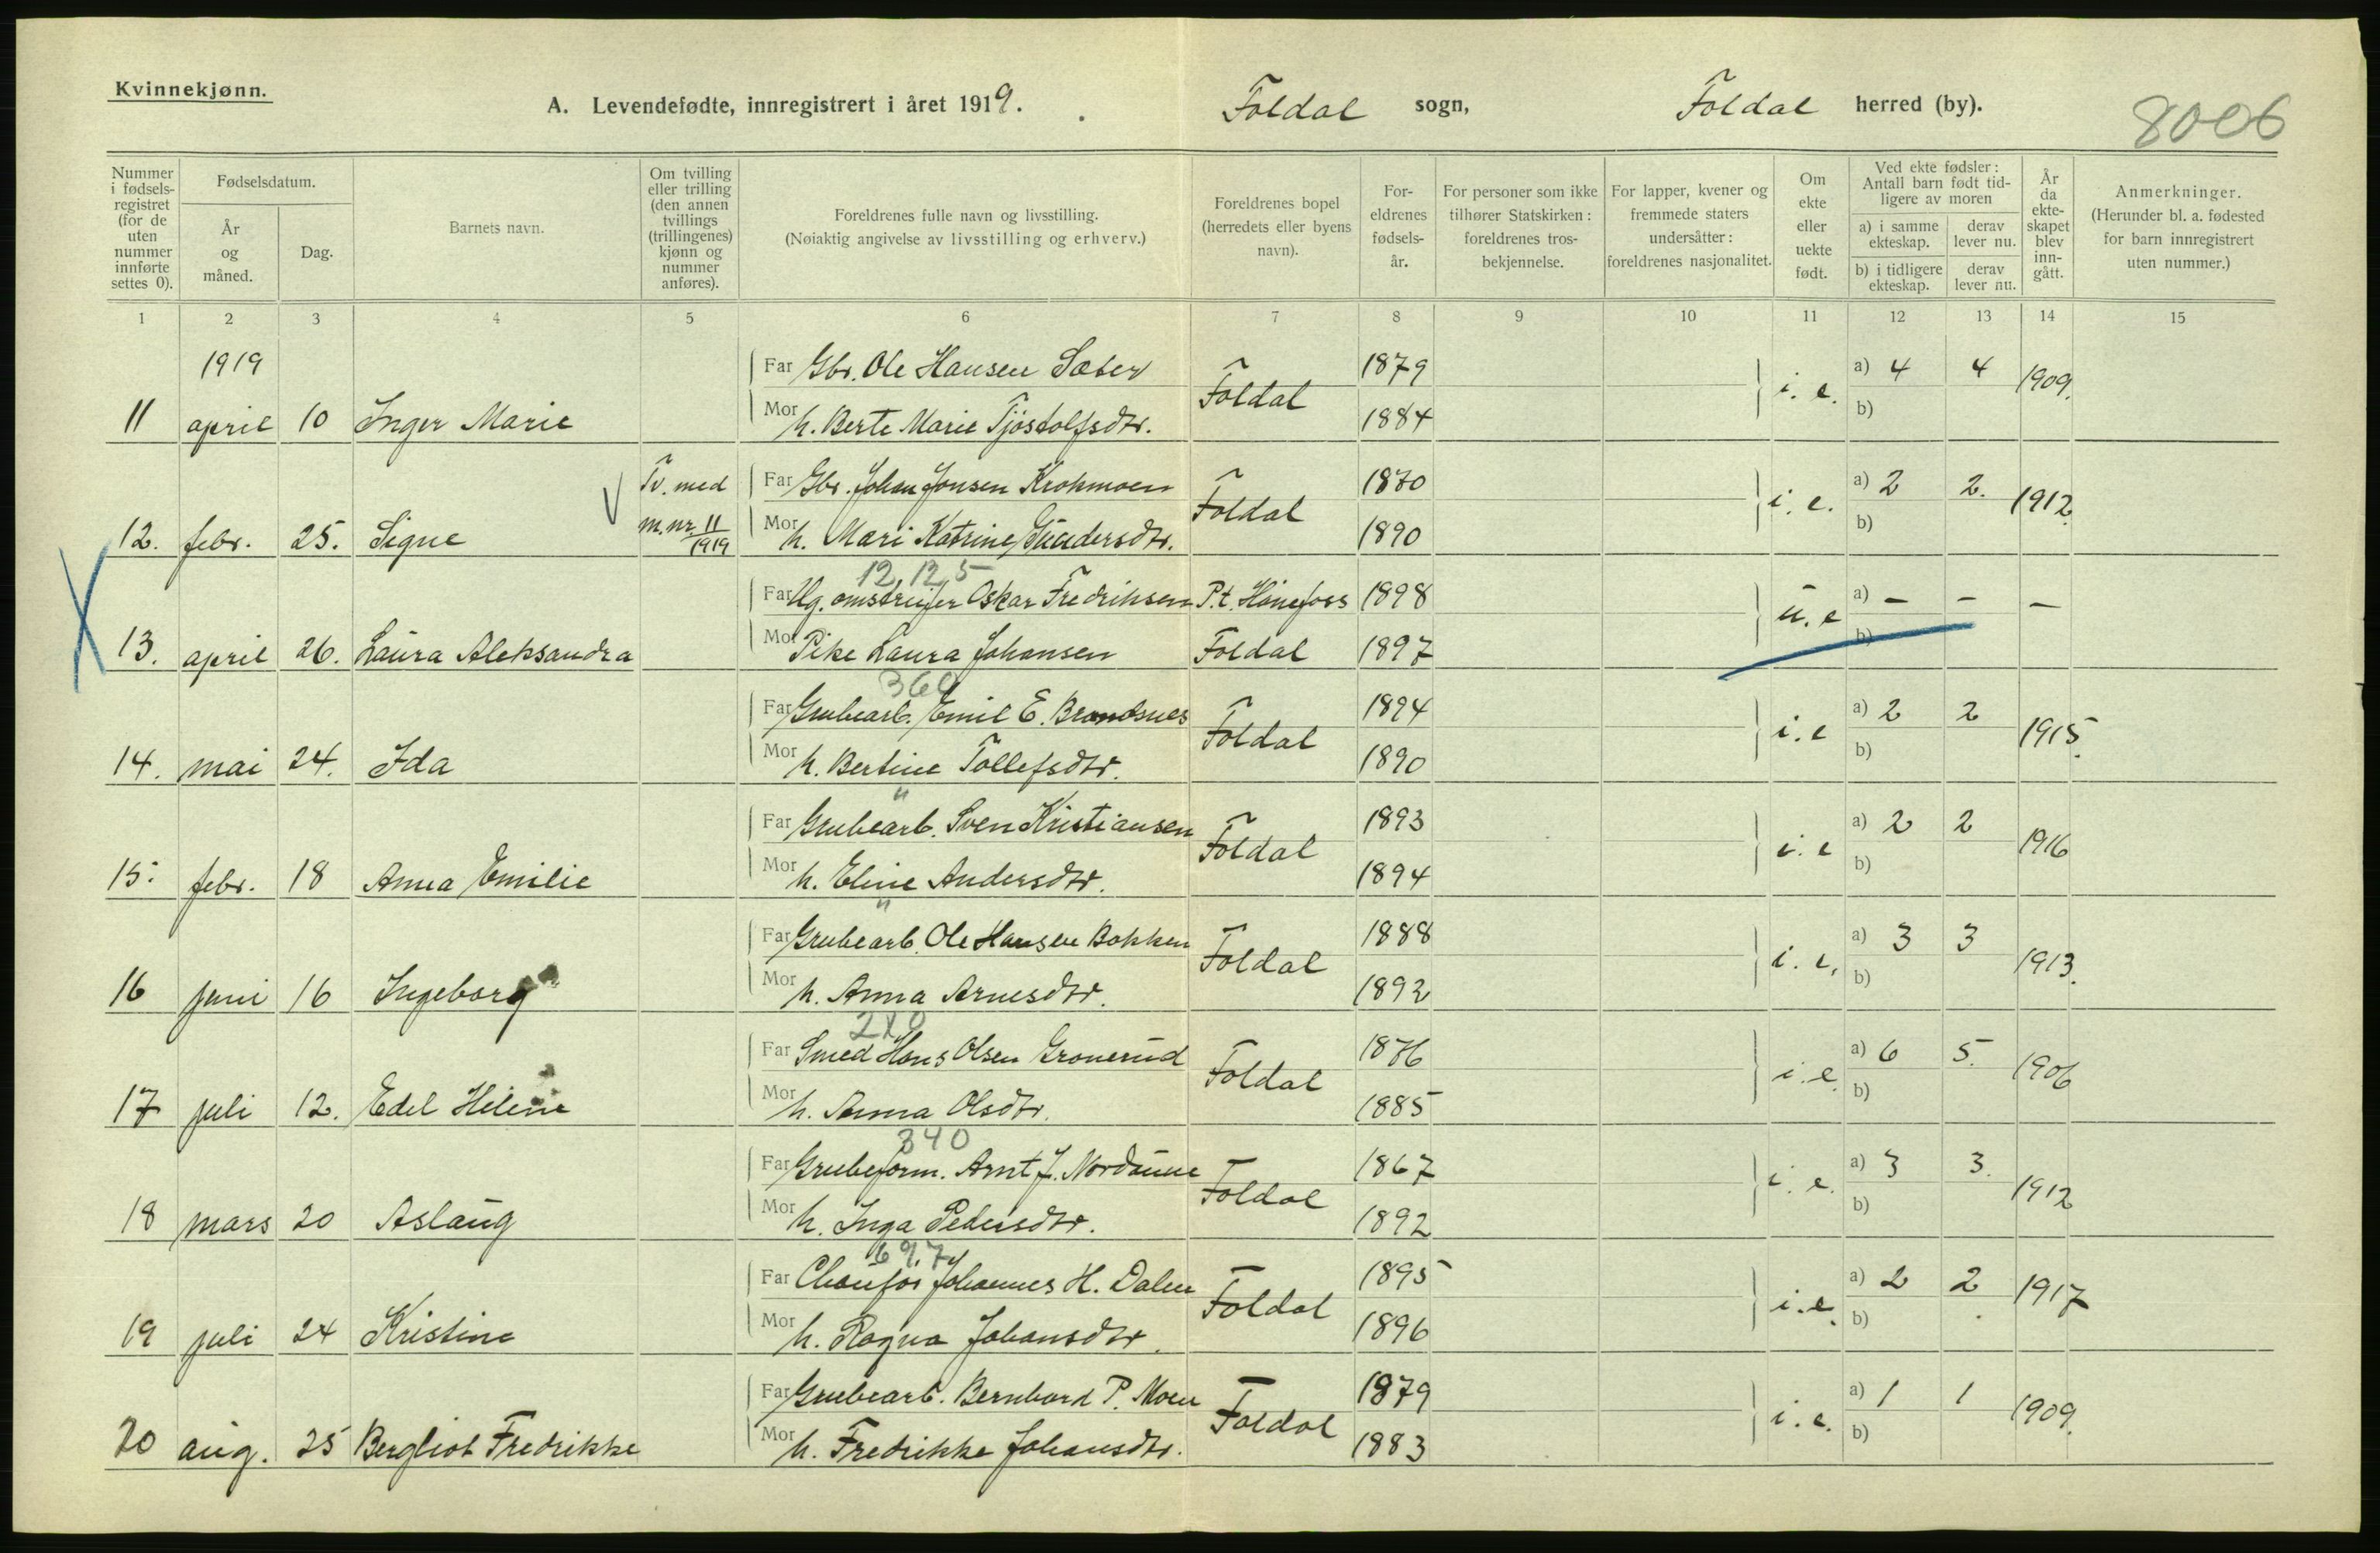 Kvinnekjønn.
A. Levendefødte, innregistrert i året 1919.
Foldal sogn, Foldal herred (by).
8006
Nummer i fødselsregistret (for de uten nummer innførte settes 0).
Fødselsdatum.
År og måned.
Dag.
Barnets navn.
Om tvilling eller trilling (den annen tvillings (trillingenes) kjønn og nummer anføres).
Foreldrenes fulle navn og livsstilling.
(Nøiaktig angivelse av livsstilling og erhverv.)
Foreldrenes bopel (herredets eller byens navn).
Foreldrenes fødselsår.
For personer som ikke tilhører Statskirken: foreldrenes trosbekjennelse.
For lapper, kvener og fremmede staters undersåtter: foreldrenes nasjonalitet.
Om ekte eller uekte født.
Ved ekte fødsler: Antall barn født tidligere av moren
a) i samme ekteskap. derav lever nu.
b) i tidligere ekteskap. derav lever nu.
År da ekteskapet blev inngått.
Anmerkninger.
(Herunder bl. a. fødested for barn innregistrert uten nummer.)
1 2 3 4 5 6 7 8 9 10 11 12 13 14 15
1919 Far Gbr. Ole Hansen Sæter 1879 a) 4 4
11 april 10 Inger Marie Mor h. Berte Marie Tjøstolfsdtr. Foldal 1884 i. e. b) 1909.
Tv. med Far Gbr. Johan Jonsen Krokmoen 1870 a) 2 2.
12. febr. 25. Signe m. nr 11 1919 Mor h. Mari Katrine Gundersdtr. Foldal 1890 i. e. b) 1912
12, 12, 5
Far Ug. omstreifer Oskar Fredriksen P.t. Hønefoss 1898 a) – – –
13. april 26. Laura Aleksandra Mor Pike Laura Johansen Foldal 1897 u. e b)
360
Far Grubearb. Emil E. Brandsnes 1894 a) 2 2
14. mai 24. Ida Mor h. Bertine Tollefsdtr. Foldal 1890 i. e b) 1915.
"
Far Grubearb. Sven Kristiansen 1893 a) 2 2
15. febr. 18 Anna Emilie Mor h. Eline Andersdtr. Foldal 1894 i. e b) 1916
"
Far Grubearb. Ole Hansen Bakken 1888 a) 3 3
16 juni 16 Ingeborg Mor h. Anna Arnesdtr. Foldal 1892 i. e. b) 1913.
Far Smed Hans Olsen Gronerud 1876 a) 6 5.
17 juli 12. Edel Helene Mor h. Anna Olsdtr. Foldal 1885 i. e. b) 1906
340
Far Grubeform. Arnt J. 1867 a) 3 3.
18 mars 20 Aslaug Mor h. Inga Pedersdtr. Foldal 1892 i. e. b) 1912
697
Far Chaufør Johannes H. Dalen 1895 a) 2 2
19 juli 24 Kristine Mor h. Ragna Johansdtr. Foldal 1896 i. e. b) 1917
Far Grubearb. Bernhard P. Moen 1879 a) 1 1
20 aug. 25 Bergliot Fredrikke Mor h. Fredrikke Johansdtr. Foldal 1883 i. e. b) 1909.